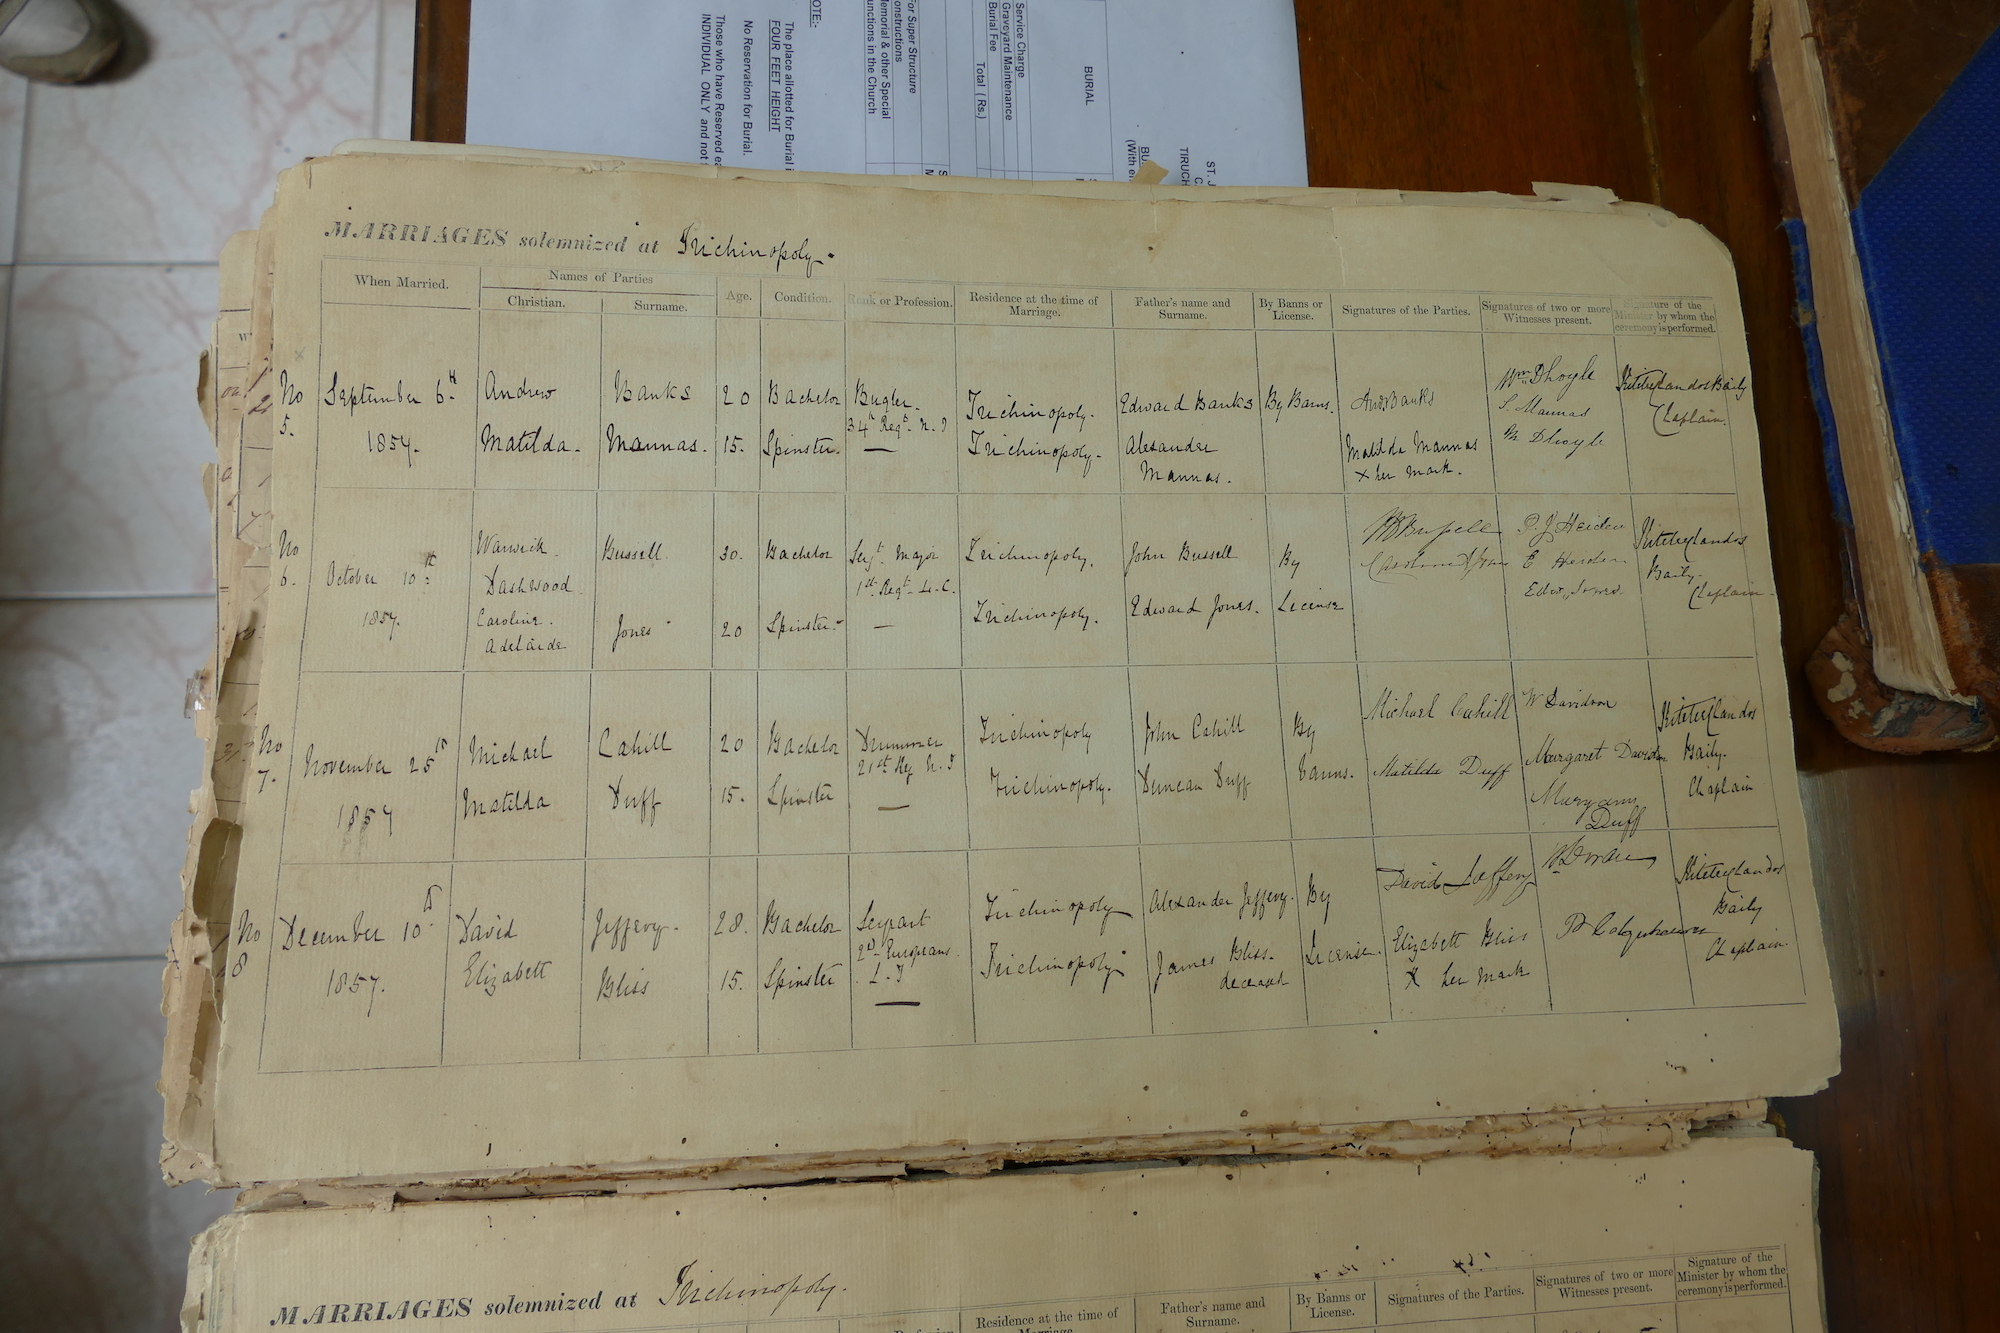 OTE:-
The place allotted for Burial i
FOUR FEET HEIGHT
No Reservation for Burial.
Those who have Reserved ea
INDIVIDUAL ONLY and not
For Super Structure
onstructions
emorial & other Special
unctions in the Church
Service Charge
Graveyard Maintenance
Burial Fee Total ( Rs.)
BURIAL
ST. J
TIRUCH
BU
(With e
MARRIAGES solemnized at Trichinopoly.
When Married.
Names of Parties
Christian.
Surname.
Age.
Condition.
Rank or Profession.
Residence at the time of
Marriage.
Father's name and
Surname.
By Banns or
License.
Signatures of the Parties.
Signatures of two or more
Witnesses present.
Signature of the
Minister by whom the
ceremony is performed.
No
5.
September 6th
1857.
Andrew
Banks
20
Bachelor
Bugler.
34th Regt. N. I
Trichinopoly.
Edward Banks
By Banns.
And. Banks
Wm Dhoyle
S. Mannas
M Dhoyle
Baily
Chaplain.
Matilda.
Mannas.
15.
Spinster.
Trichinopoly.
Alexander
Mannas.
Matilda Mannas
x her mark.
No
6.
October 10th
1857.
Warwick
Dashwood
Bussell.
30.
Bachelor
Serjt Major
1st Regt L. C.
Trichinopoly.
John Bussell
By
License
Caroline.
Adelaide
Jones
20
Spinster.
Trichinopoly.
Edward Jones.
Bussell
Caroline A Jones
P. J Heiden
E Heiden
Edwd Jones
Baily
Chaplain.
No
7.
November 25th
1857
Michael
Cahill
20
Bachelor
Drummer
21st Reg N. I
Trichinopoly
John Cahill
By
banns.
Michael Cahill
Matilda
Duff
15.
Spinster
Trichinopoly.
Duncan Duff
Matilda Duff
W Davidson
Margaret Davidson
Maryann
Duff
Baily.
Chaplain
No
8
December 10th
1857.
David
Jeffery.
28.
Bachelor
Serjeant
2nd Europeans.
L. I
Trichinopoly
Alexander Jeffery.
By
License.
David Jeffery
Elizabeth
Bliss
15.
Spinster
Trichinopoly
James Bliss.
deceased
Elizabeth Bliss
X her mark
Baily
Chaplain.
MARRIAGES solemnized at Trichinopoly.
Residence at the time of
Marriage.
Father's name and
Surname.
By Banns or
License.
Signatures of the Parties.
Signatures of two or more
Witnesses present.
Signature of the
Minister by whom the
ceremony is performed.